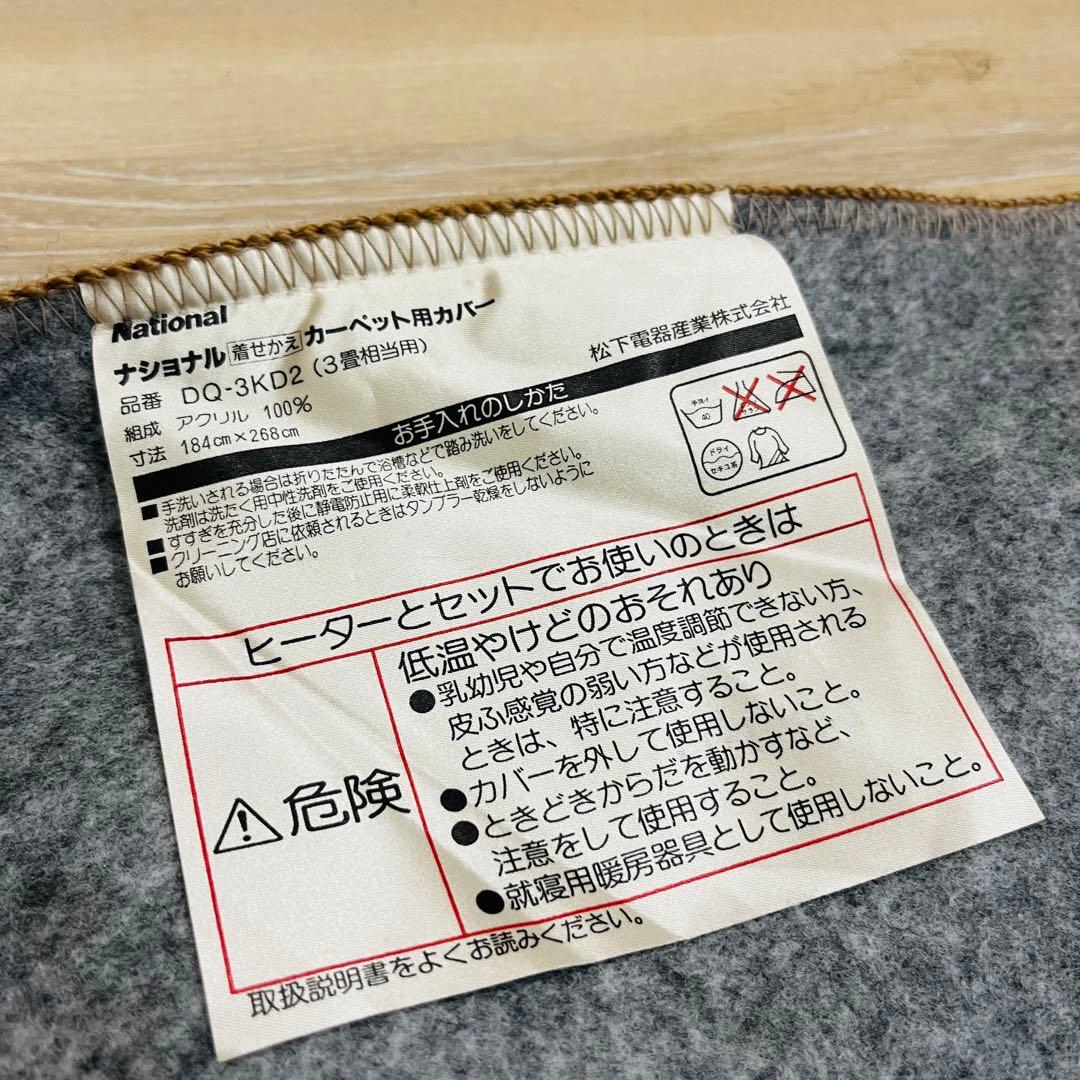 National
ナショナル 着せかえ カーペット用カバー
品番 DQ-3KD2 (3畳相当用)
組成 アクリル 100%
寸法 184cm×268cm
松下電器産業株式会社
お手入れのしかた
■手洗いされる場合は折りたたんで浴槽などで踏み洗いをしてください。
洗剤は洗たく用中性洗剤をご使用ください。
■すすぎを充分した後に静電防止用に柔軟仕上剤をご使用ください。
■クリーニング店に依頼されるときはタンブラー乾燥をしないように
お願いしてください。
手洗イ
40
ドライ
セキユ系
ヒーターとセットでお使いのときは
⚠危険
低温やけどのおそれあり
●乳幼児や自分で温度調節できない方、
皮ふ感覚の弱い方などが使用される
ときは、特に注意すること。
●カバーを外して使用しないこと。
●ときどきからだを動かすなど、
注意をして使用すること。
●就寝用暖房器具として使用しないこと。
取扱説明書をよくお読みください。